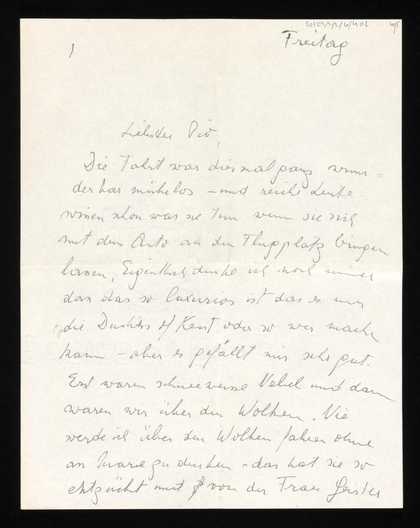 1
Freitag
Liebster Pio,
Die Fahrt war diesmal ganz wunn=
derbar mühelos – und reiche Leute
wissen schon was sie tun wenn sie sich
mit dem Auto an den Flugplatz bringen
lassen. Eigentlich denke ich noch immer
dass das so luxuriös ist dass es nur
die Duchess of Kent oder so wer machen
kann – aber es gefällt mir sehr gut.
Erst waren schneeweisse Nebel und dann
waren wir über den Wolken. Nie
werde ich über den Wolken fahren ohne
an Marie zu denken – das hat sie so
entzückt mit von der Frau